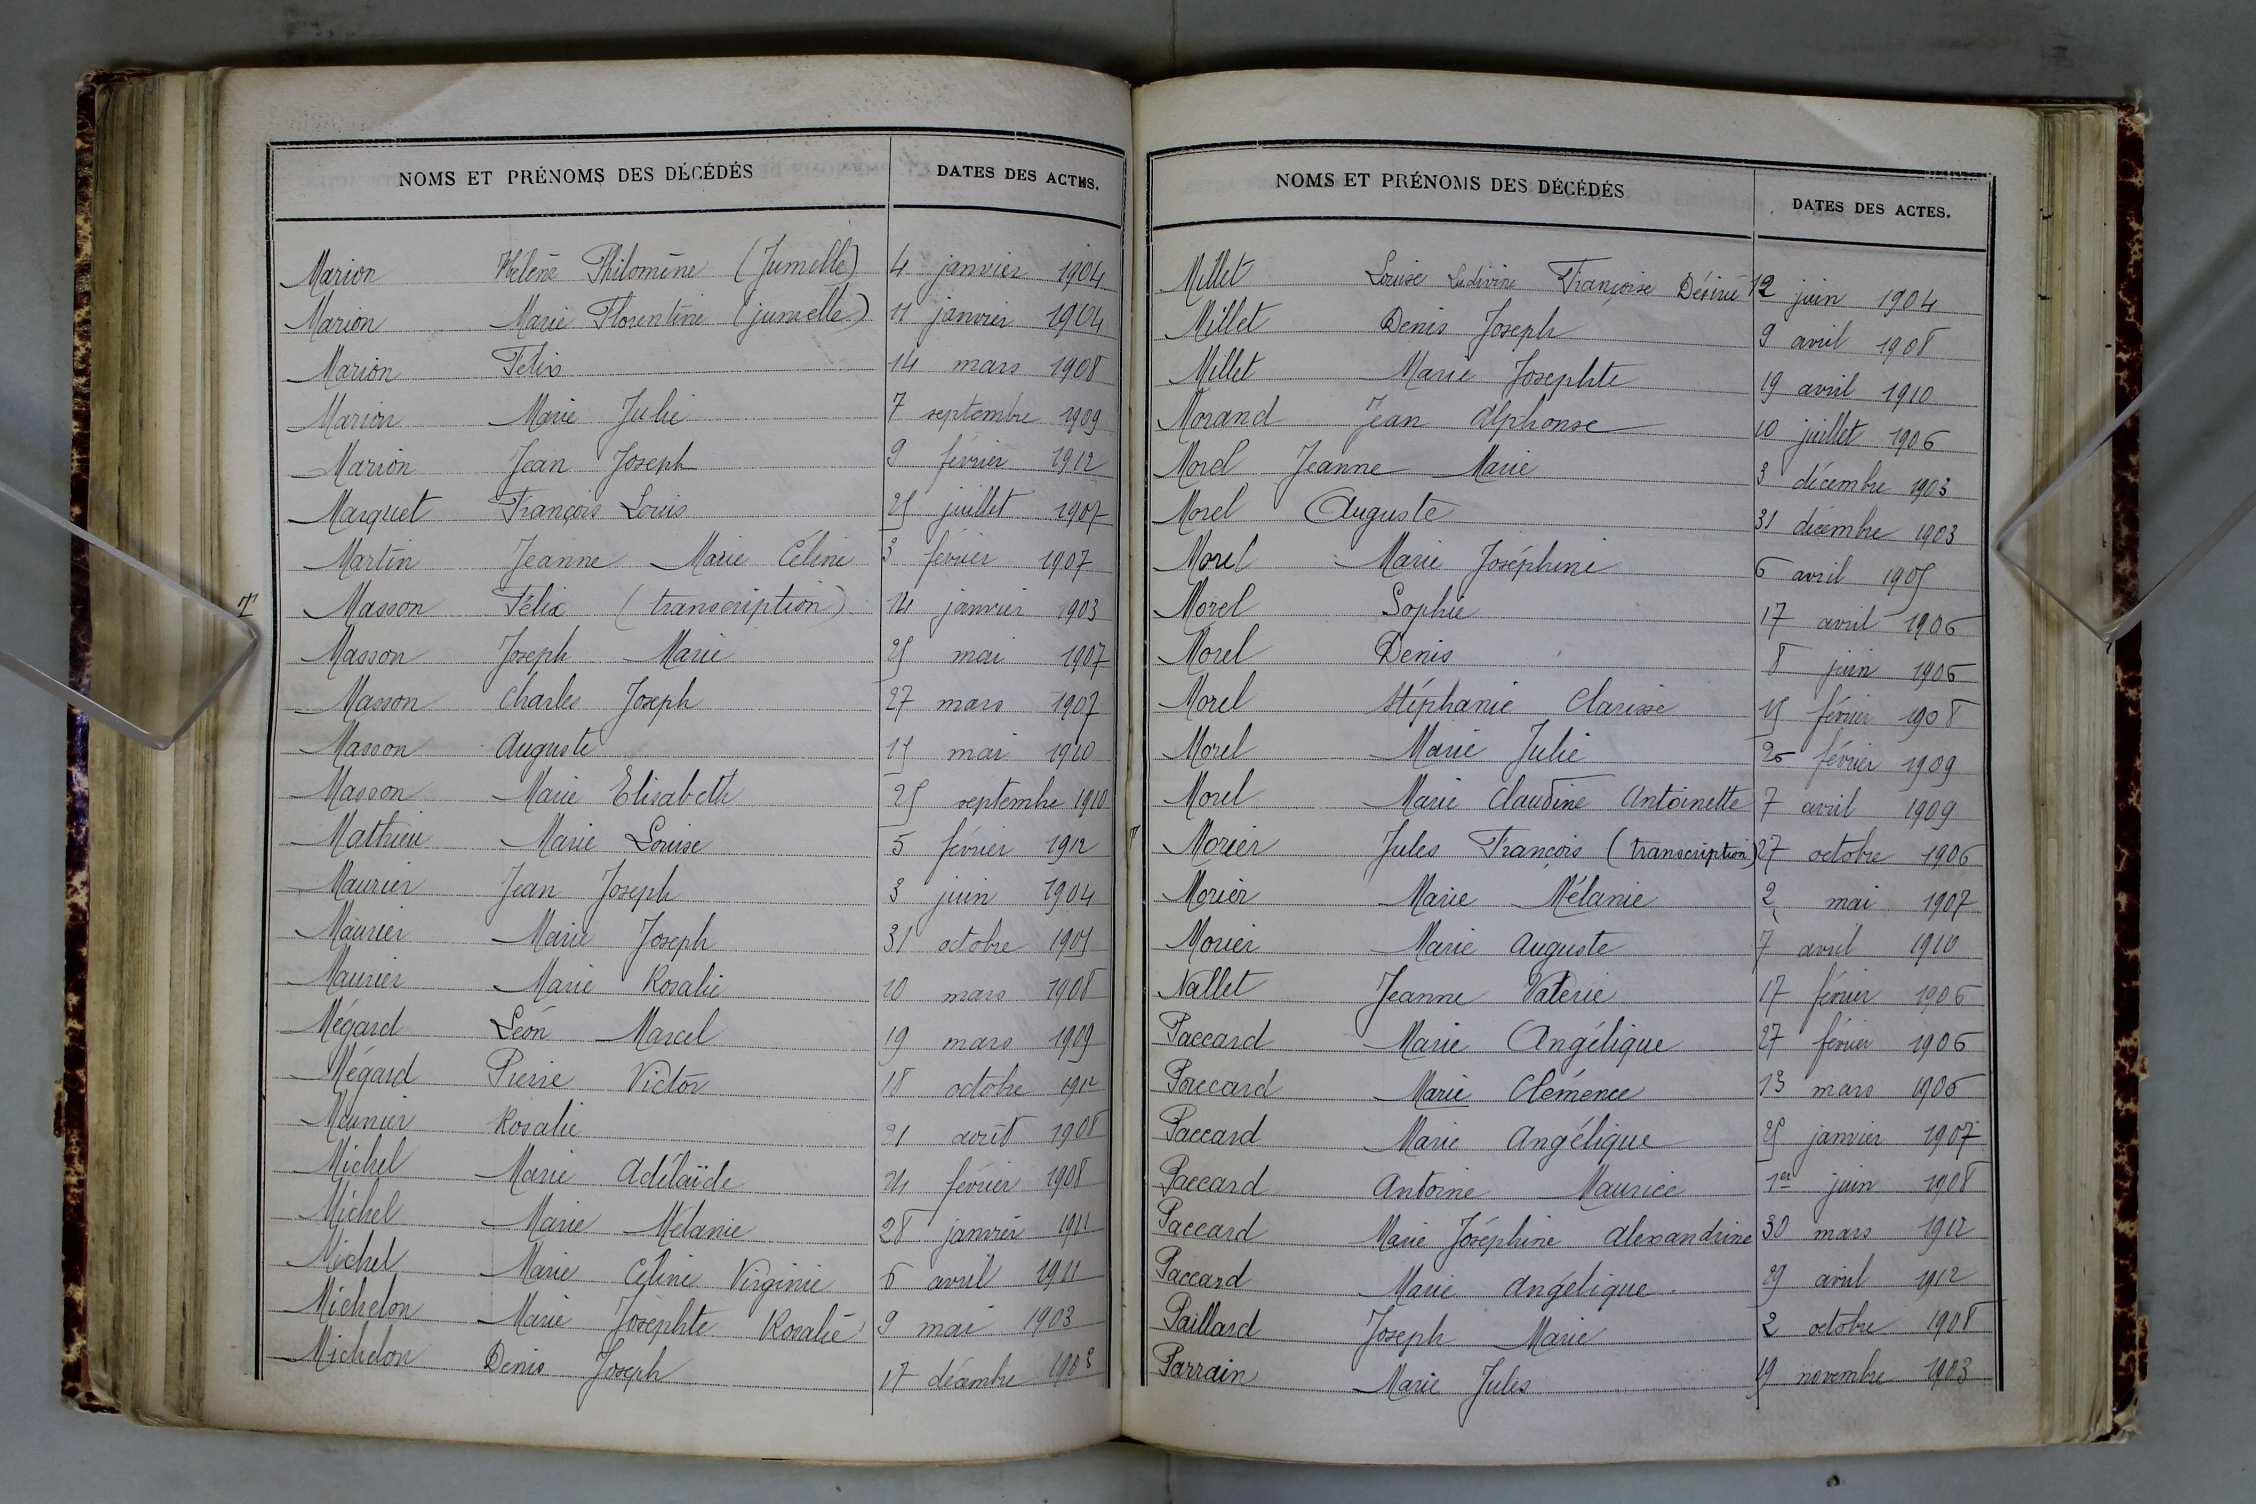 NOMS ET PRÉNOMS DES DÉCÉDÉS DATES DES ACTES.
Marion Hélène Philomène (Jumelle) 4 janvier 1904
Marion Marie Florentine (jumelle) 11 janvier 1904
Marion Félix 14 mars 1908
Marion Marie Julie 7 septembre 1909
Marion Jean Joseph 9 février 1912
Marquet François Louis 25 juillet 1907
Martin Jeanne Marie Céline 3 février 1907
T Masson Félix (transcription) 14 janvier 1903
Masson Joseph Marie 25 mai 1907
Masson Charles Joseph 27 mars 1907
Masson Auguste 15 mai 1910
Masson Marie Elisabeth 25 septembre 1910
Mathieu Marie Louise 5 février 1912
Maurier Jean Joseph 3 juin 1904
Maurier Marie Joseph 31 octobre 1905
Maurier Marie Rosalie 10 mars 1908
Mégard Léon Marcel 19 mars 1909
Mégard Pierre Victor 18 octobre 1912
Meunier Rosalie 21 août 1908
Michel Marie Adélaïde 24 février 1908
Michel Marie Mélanie 28 janvier 1911
Michel Marie Céline Virginie 6 avril 1911
Michelon Marie Josephte Rosalie 9 mai 1903
Michelon Denis Joseph 17 décembre 1903
NOMS ET PRÉNOMS DES DÉCÉDÉS DATES DES ACTES.
Millet Louise Ludivine Françoise Désirée 12 juin 1904
Millet Denis Joseph 9 avril 1908
Millet Marie Josephte 19 avril 1910
Morand Jean Alphonse 10 juillet 1906
Morel Jeanne Marie 3 décembre 1903
Morel Auguste 31 décembre 1903
Morel Marie Joséphine 6 avril 1905
Morel Sophie 17 avril 1906
Morel Denis 8 juin 1906
Morel Stéphanie Clarisse 15 février 1908
Morel Marie Julie 26 février 1909
Morel Marie Claudine Antoinette 7 avril 1909
T Morier Jules François (transcription) 27 octobre 1906
Morier Marie Mélanie 2 mai 1907
Morier Marie Auguste 7 avril 1910
Nallet Jeanne Valérie 17 février 1906
Paccard Marie Angélique 27 février 1906
Paccard Marie Clémence 13 mars 1906
Paccard Marie Angélique 25 janvier 1907
Paccard Antoine Maurice 1er juin 1908
Paccard Marie Joséphine Alexandrine 30 mars 1912
Paccard Marie Angélique 29 avril 1912
Paillard Joseph Marie 2 octobre 1908
Parrain Marie Jules 19 novembre 1903